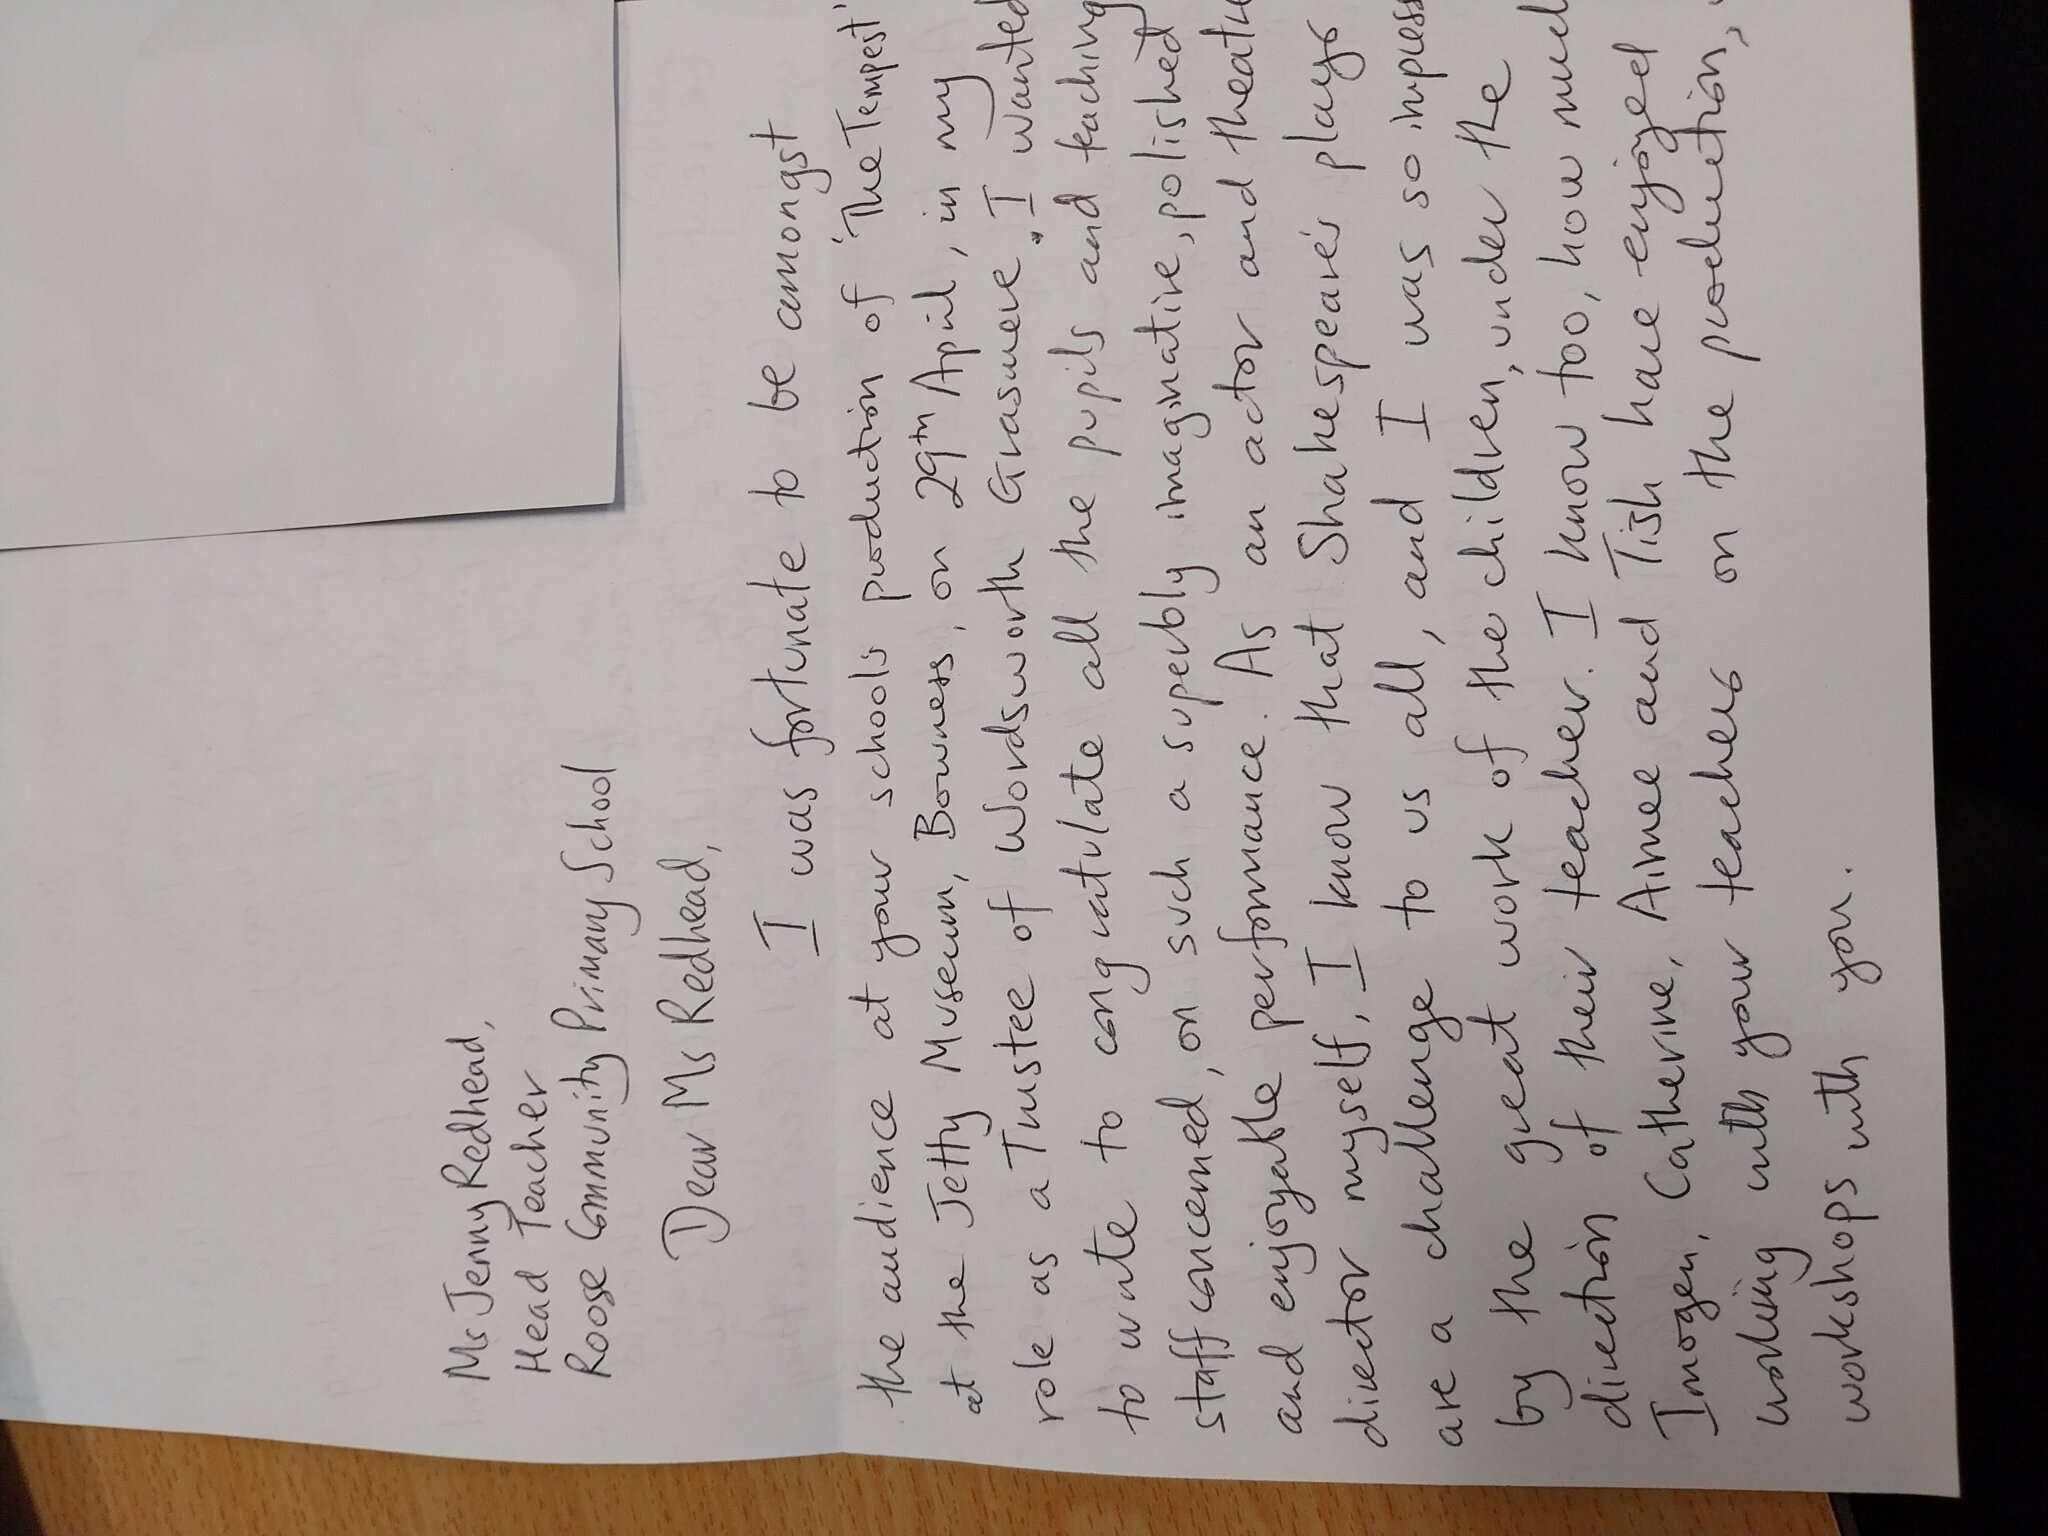 Ms Jenny Redhead,
Head Teacher
Roose Community Primary School
Dear Ms Redhead,
I was fortunate to be amongst
the audience at your school's production of 'The Tempest'
at the Jetty Museum, Bowness, on 29th April, in my
role as a Trustee of Wordsworth Grasmere. I wanted
to write to congratulate all the pupils and teaching
staff concerned, on such a superbly imaginative, polished
and enjoyable performance. As an actor and
director myself, I know that Shakespeare's plays
are a challenge to us all, and I was so
by the great work of the children, under the
direction of their teacher. I know too, how
Imogen, Catherine, Aimee and Tish have enjoyed
working with your teachers on the production,
workshops with you.